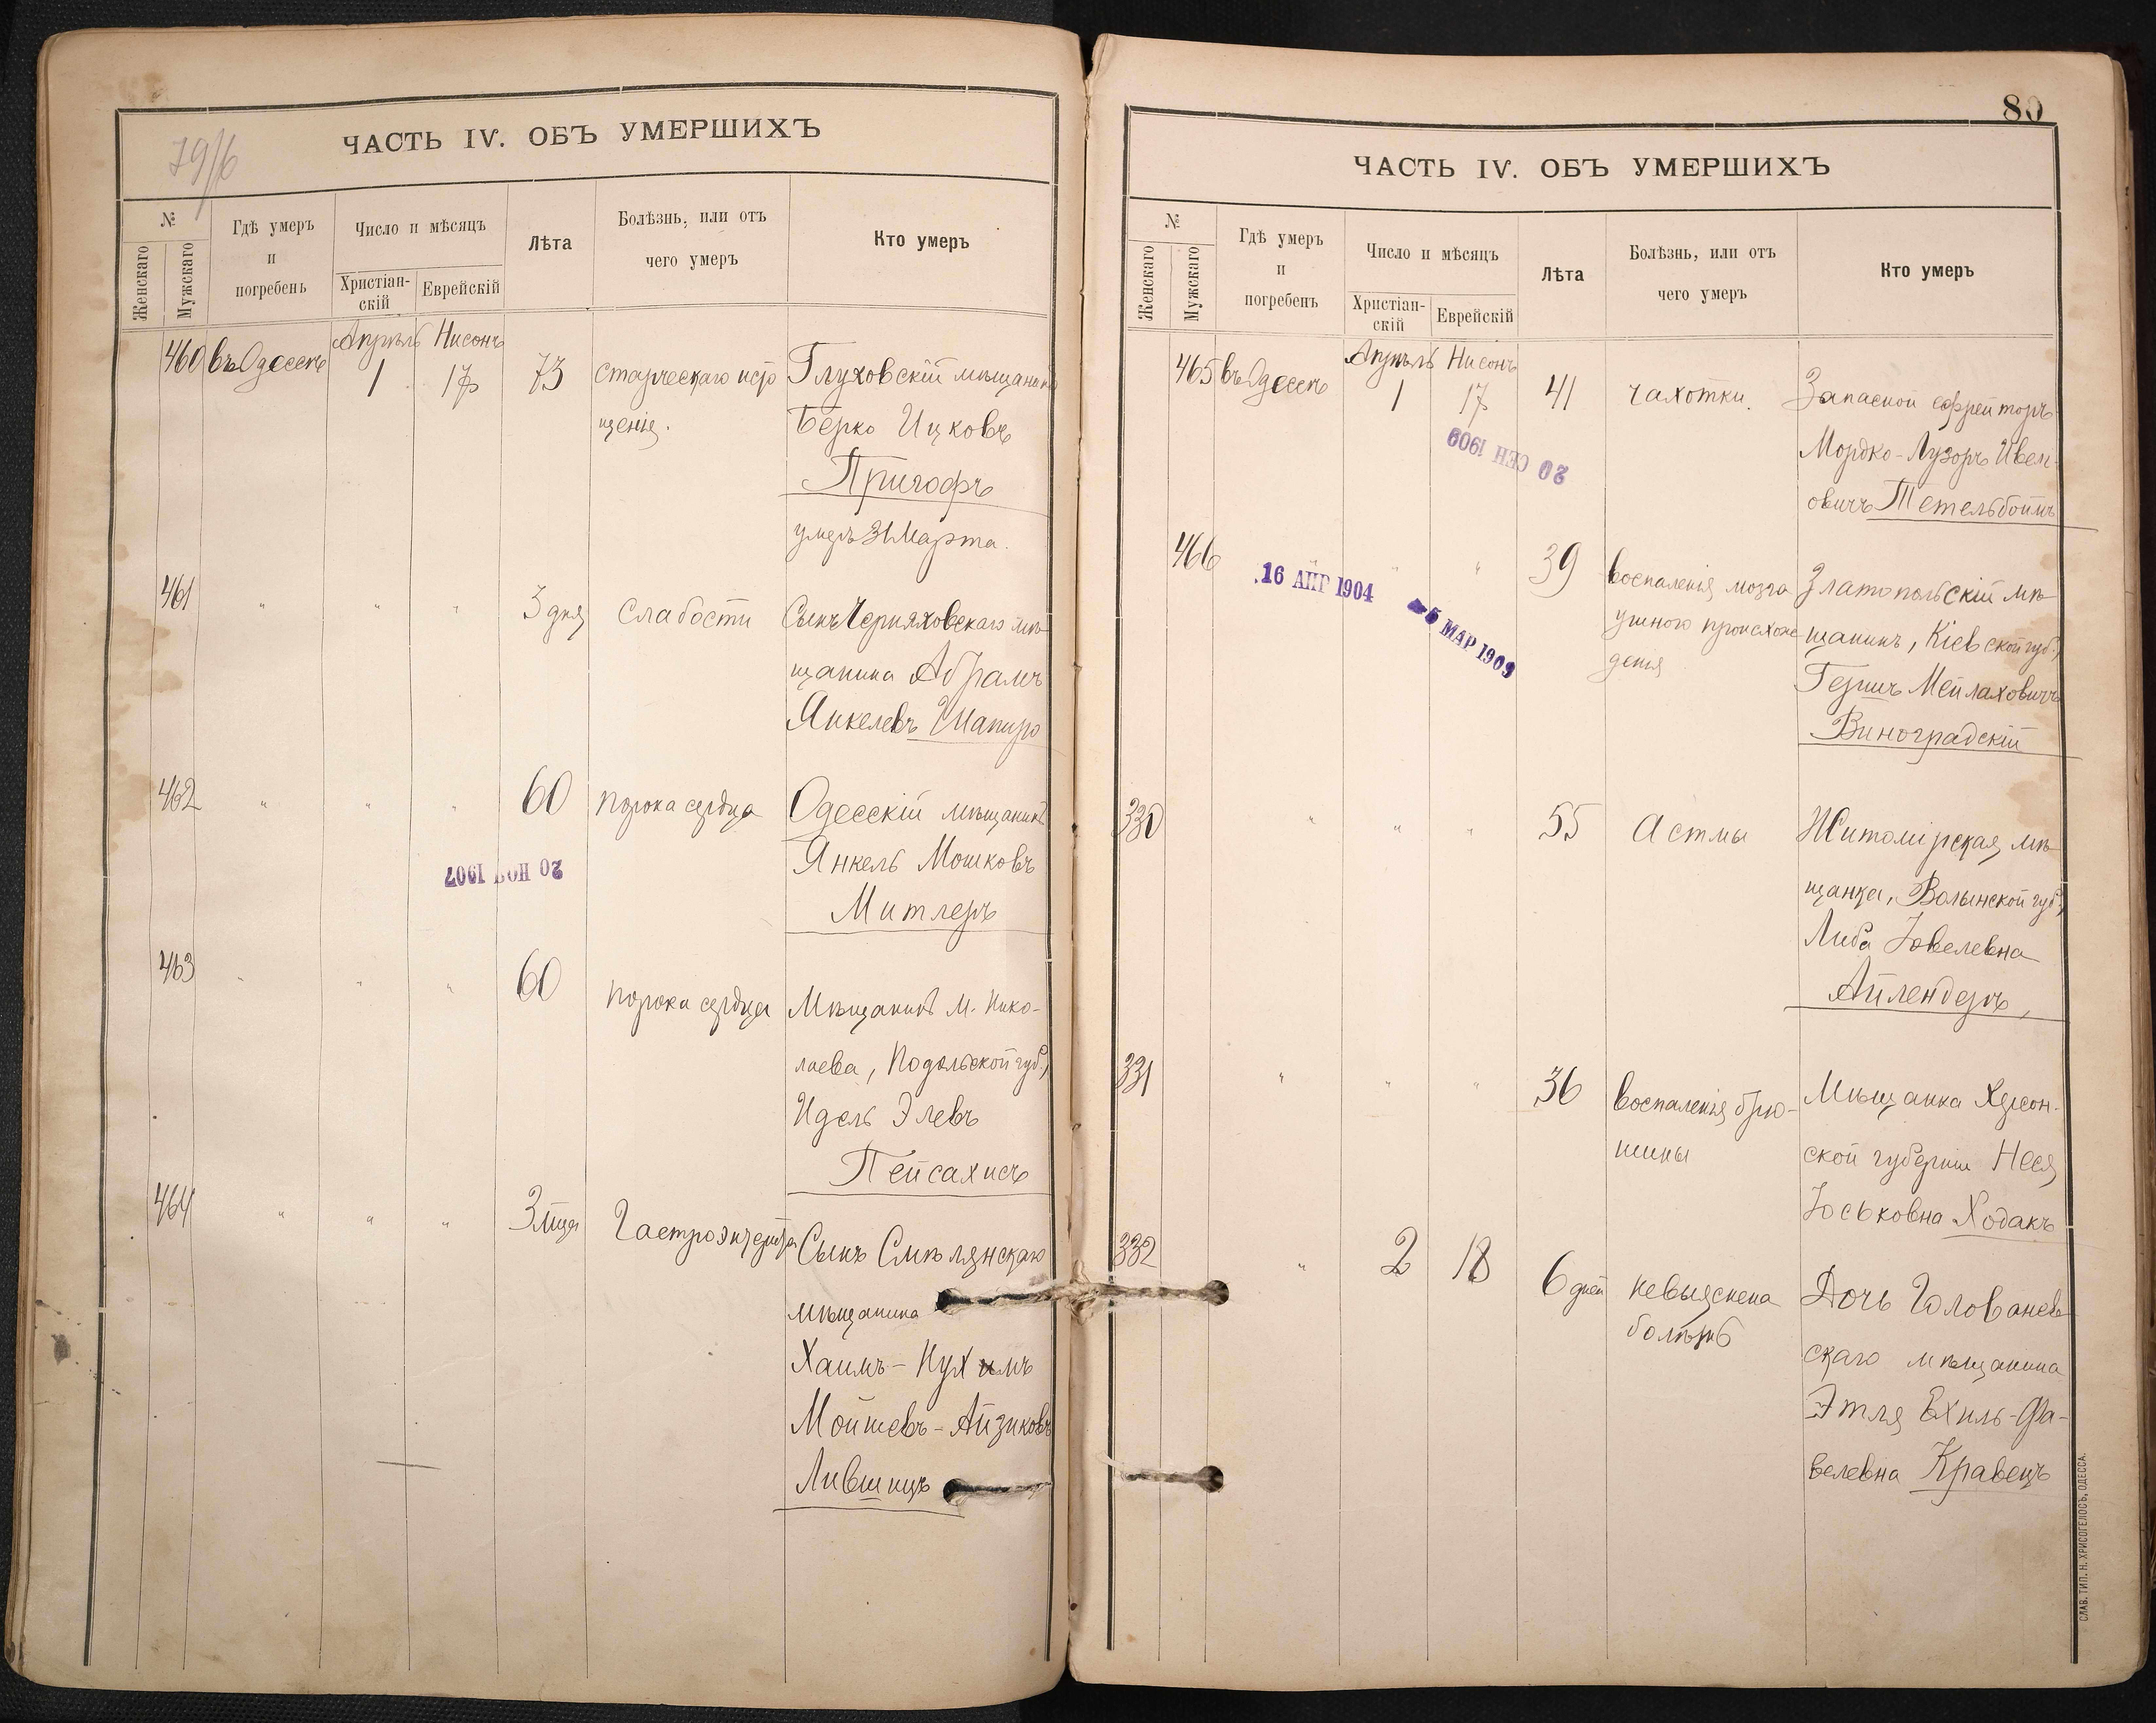 79/б
ЧАСТЬ IV. ОБЪ УМЕРШИХЪ
№
Женскаго
Мужскаго
Гдѣ умеръ
и
погребенъ
Число и мѣсяцъ
Христіан-
скій
Еврейскій
Лѣта
Болѣзнь, или отъ
чего умеръ
Кто умеръ
460 въ Одессѣ Апрѣль 1 Нисонъ 17 73 старческаго исто
щенія.
Глуховскій мѣщанинъ
Берко Ицковъ
Пригофъ
умеръ 31 Марта.
461 " " " 3 дня Слабости
Сынъ Черняховскаго мѣ-
щанина Абрамъ
Янкелевъ Шапиро
462 " " " 60 порока сердца
Одесскій мѣщанинъ
Янкель Мошковъ
Митлеръ
20 НОЯ 1907
463 " " " 60 порока сердца
Мѣщанинъ м. Нико-
лаева, Подольской губ.,
Идель Элевъ
Пейсахисъ
464 " " " 3 мѣца Гастроэнтерита
Сынъ Смѣлянскаго
мѣщанина
Хаимъ-Нухимъ
Мойшевъ-Айзиковъ
Лившицъ
80
ЧАСТЬ IV. ОБЪ УМЕРШИХЪ
№
Женскаго
Мужскаго
Гдѣ умеръ
и
погребенъ
Число и мѣсяцъ
Христіан-
скій
Еврейскій
Лѣта
Болѣзнь, или отъ
чего умеръ
Кто умеръ
465 въ Одессѣ Апрѣль 1 Нисонъ 17 41 чахотки.
Запасной ефрейторъ
Мордко-Лузоръ Ивел-
овичъ Тетельбоймъ
20 СЕН 1909
466 " " 39 воспаленія мозга
ушного происхож-
денія
Златопольскій мѣ-
щанинъ, Кіевской губ.,
Гершъ Мейлаховичъ
Виноградскій
16 АПР 1904
-5 МАР 1909
330 " " " 55 Астмы
Житомірская мѣ-
щанка, Волынской губ.,
Либа Іовелевна
Айлендеръ,
331 " " " 36 воспаленія брю-
шины
Мѣщанка Херсон-
ской губерніи Нeся
Іоськовна Ходакъ
332 " 2 18 6 дней невыяснена
болѣзнь
Дочь Голованев-
скаго мѣщанина
Этля Ехиль-Фа-
велевна Кравецъ
СЛАВ. ТИП. Н. ХРИСОГЕЛОСЪ, ОДЕССА.